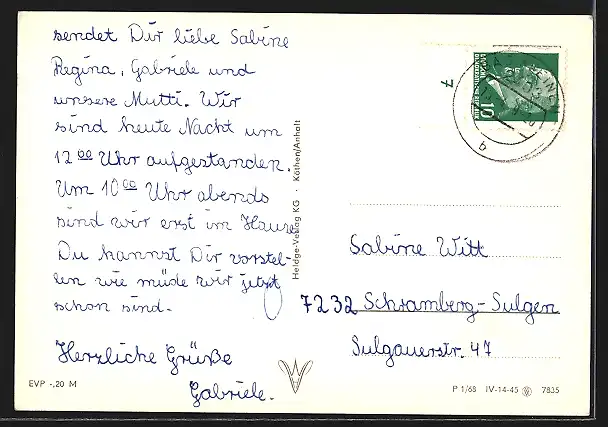 sendet Dir liebe Sabine
Regina, Gabriele und
unsere Mutti. Wir
sind heute Nacht um
12 00 Uhr aufgestanden.
Um 10 00 Uhr abends
sind wir erst im Hause.
Du kannst Dir vorstel-
len wie müde wir jetzt
schon sind.
Herzliche Grüße
Gabriele.
EVP -,20 M
Heldge-Verlag KG · Köthen/Anhalt
10
7
b
Sabine Witt
7232 Schramberg-Sulgen
Sulgauerstr. 47
P 1/68 IV-14-45 7835